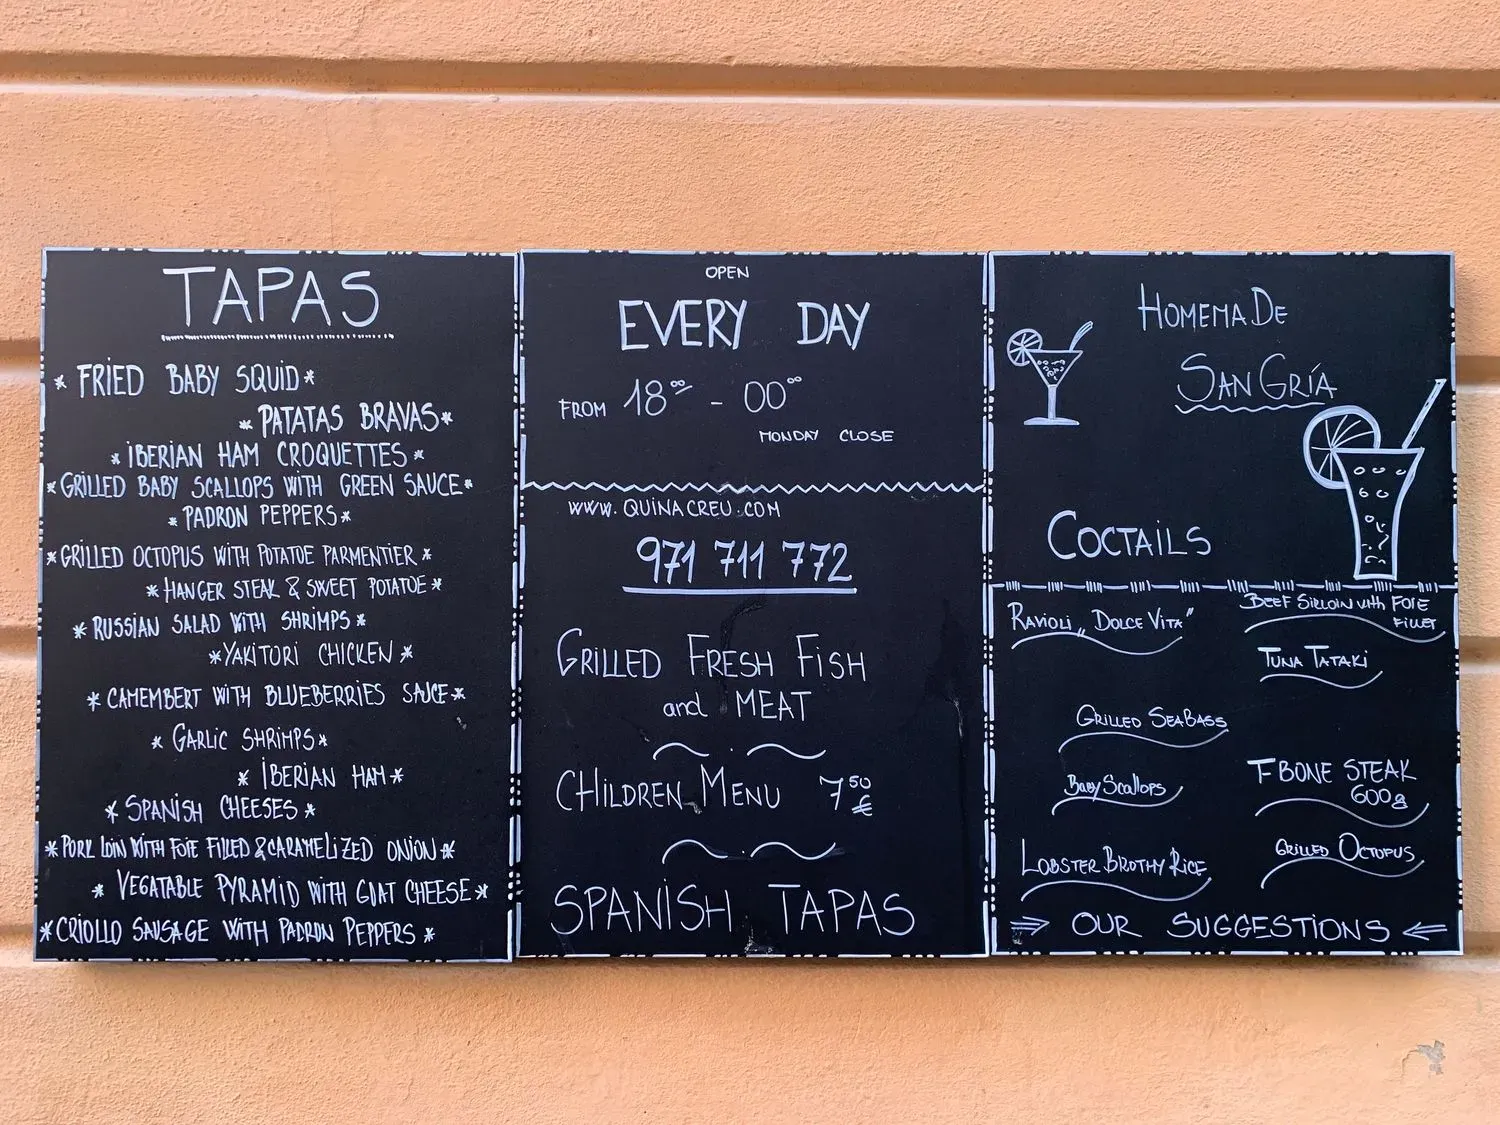 TAPAS
* FRIED BABY SQUID *
* PATATAS BRAVAS *
* IBERIAN HAM CROQUETTES *
* GRILLED BABY SCALLOPS WITH GREEN SAUCE *
* PADRON PEPPERS *
* GRILLED OCTOPUS WITH POTATOE PARMENTIER *
* HANGER STEAK & SWEET POTATOE *
* RUSSIAN SALAD WITH SHRIMPS *
* YAKITORI CHICKEN *
* CAMEMBERT WITH BLUEBERRIES SAUCE *
* GARLIC SHRIMPS *
* IBERIAN HAM *
* SPANISH CHEESES *
* PORK LOIN WITH FOIE FILLED & CARAMELIZED ONION *
* VEGATABLE PYRAMID WITH GOAT CHEESE *
* CRIOLLO SAUSAGE WITH PADRON PEPPERS *
OPEN
EVERY DAY
FROM 18ºº - 00ºº
MONDAY CLOSE
WWW.QUINACREU.COM
971 711 772
GRILLED FRESH FISH
and MEAT
CHILDREN MENU 7,50 €
SPANISH TAPAS
HOMEMADE
SANGRÍA
COCTAILS
RAVIOLI „DOLCE VITA"
BEEF SIRLOIN with FOIE
FILLET
TUNA TATAKI
GRILLED SEABASS
BABY SCALLOPS
T BONE STEAK
600g
LOBSTER BROTHY RICE
GRILLED OCTOPUS
⇒ OUR SUGGESTIONS ⇐